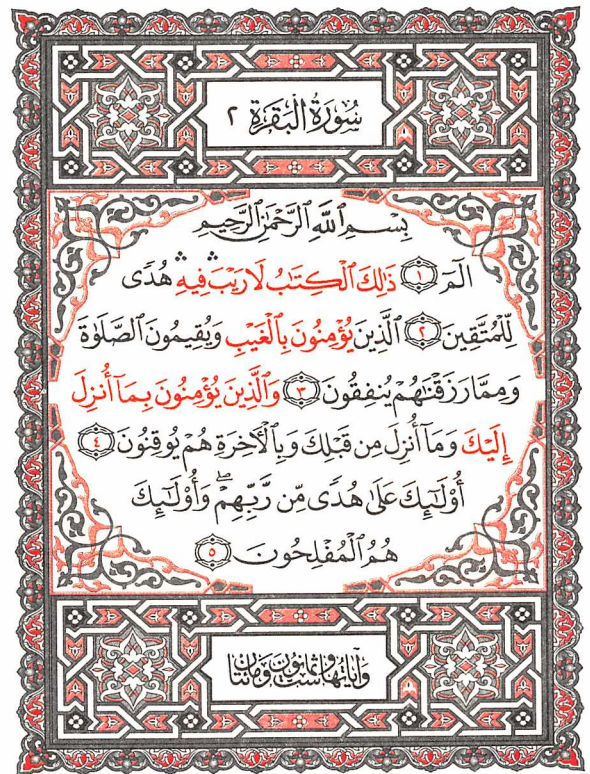 سُورَةُ الْبَقَرَةِ ٢
بِسْمِ ٱللَّهِ ٱلرَّحْمَٰنِ ٱلرَّحِيمِ
الٓمٓ ١ ذَٰلِكَ ٱلْكِتَٰبُ لَا رَيْبَ ۛ فِيهِ ۛ هُدًى
لِّلْمُتَّقِينَ ٢ ٱلَّذِينَ يُؤْمِنُونَ بِٱلْغَيْبِ وَيُقِيمُونَ ٱلصَّلَوٰةَ
وَمِمَّا رَزَقْنَٰهُمْ يُنفِقُونَ ٣ وَٱلَّذِينَ يُؤْمِنُونَ بِمَآ أُنزِلَ
إِلَيْكَ وَمَآ أُنزِلَ مِن قَبْلِكَ وَبِٱلْأَخِرَةِ هُمْ يُوقِنُونَ ٤
أُوْلَٰٓئِكَ عَلَىٰ هُدًى مِّن رَّبِّهِمْ ۖ وَأُوْلَٰٓئِكَ
هُمُ ٱلْمُفْلِحُونَ ٥
وَآيَاتُهَا سِتٌّ وَثَمَانُونَ وَمِئَتَانِ